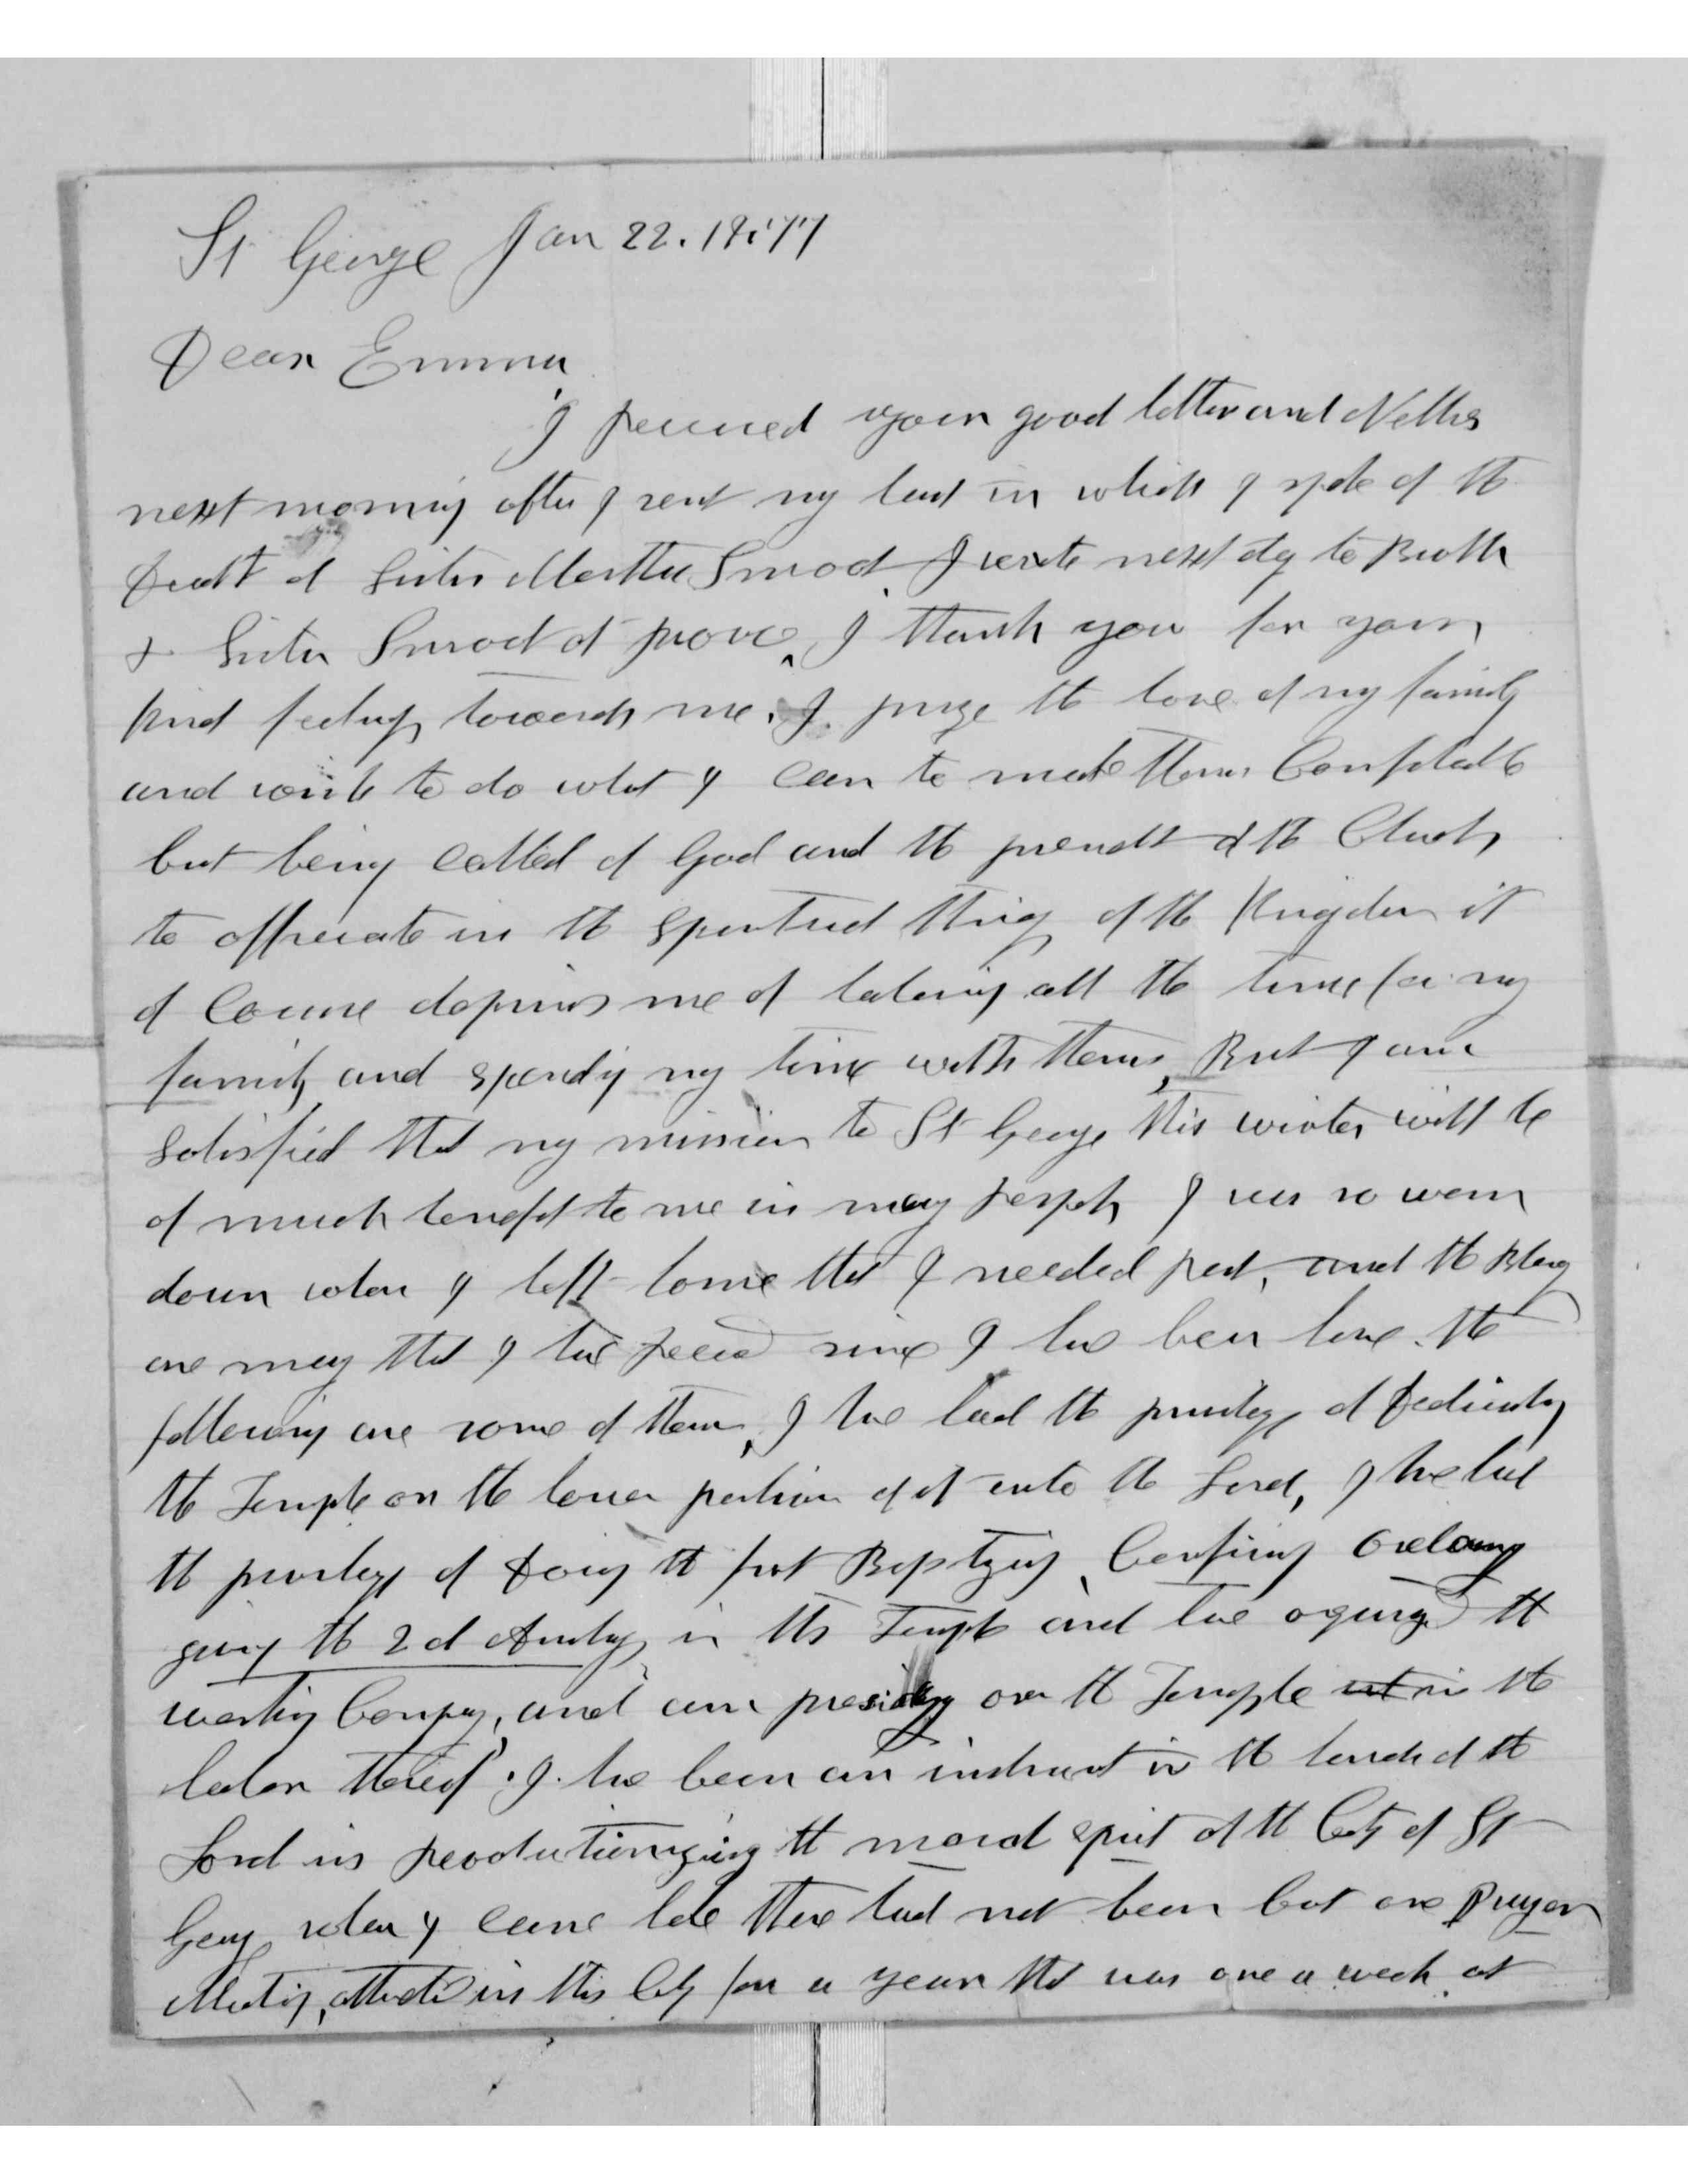 St George Jan 22. 1877
Dear Emma
I received your good letter and Nellies
next morning after I sent my last in which I spoke of the
Death of Sister Martha Smoot I wrote next day to Broth
& Sister Smoot of provo, I thank you for your
kind feelings towards me. I prize the love of my family
and wish to do what I can to make them Comfortable
but being called of God and the presidt of the Church
to officiate in the spiritual things of the Kingdom it
of Course deprives me of laboring all the time for my
family and spending my time with them, But I am
satisfied that my mission to St George this winter will be
of much benefit to me in many respects I was so worn
down when I left home that I needed rest, and the Blessings
are many that I have received since I have been here. the
following are some of them, I have had the privilege of Dedicating
the Temple or the lower portion of it unto the Lord, I have had
the privilege of Doing the first Baptizing, Confirming Ordaining
giving the 2d Anointings in the Temple and have organized the
working Company, and am presiding over the Temple in the
labor thereof. I have been an instrument in the hands of the
Lord in revolutionizing the moral spirit of the City of St
George when I came here there had not been but one Prayer
Meeting, attended in this City for a year that was one a week at